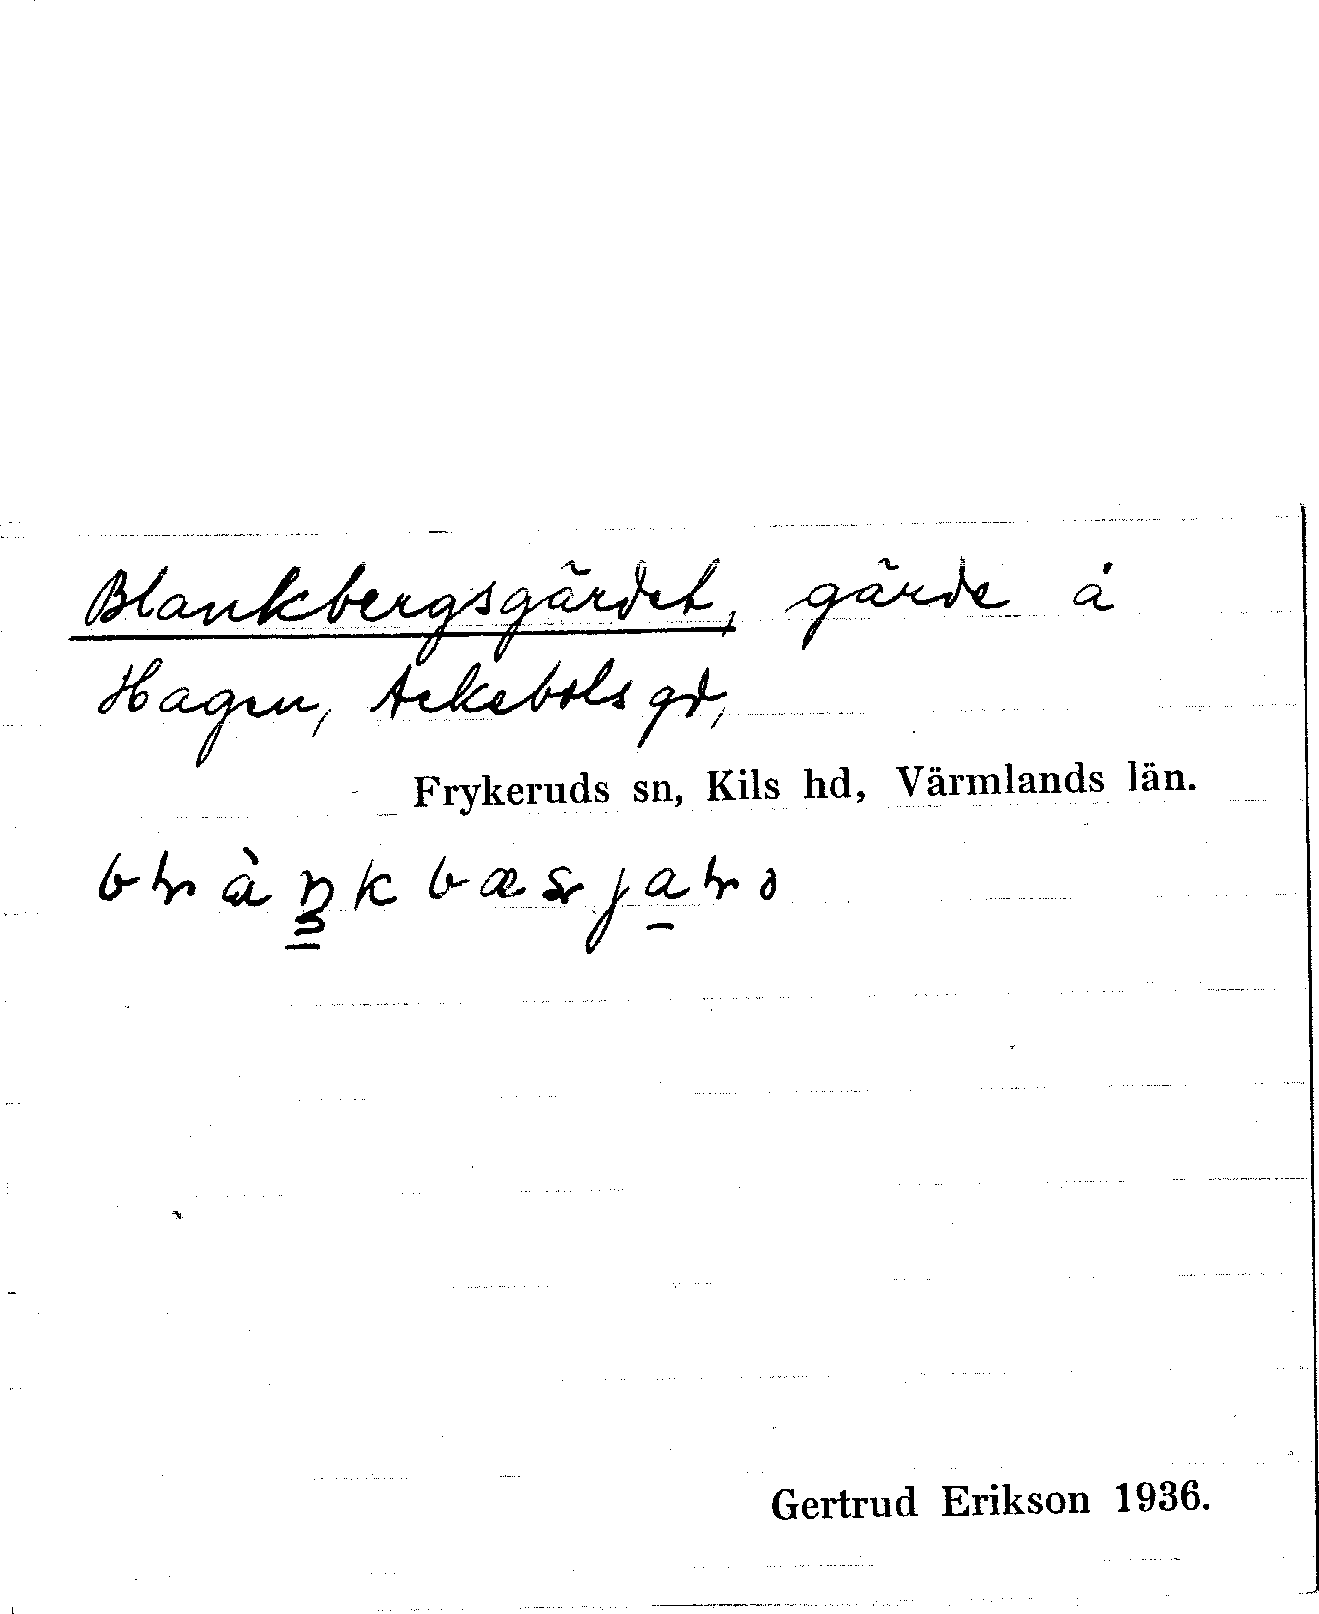 Blankbergsgärdet, gärde å
Hagen, Ackebols gd,
Frykeruds sn, Kils hd, Värmlands län.
Gertrud Erikson 1936.